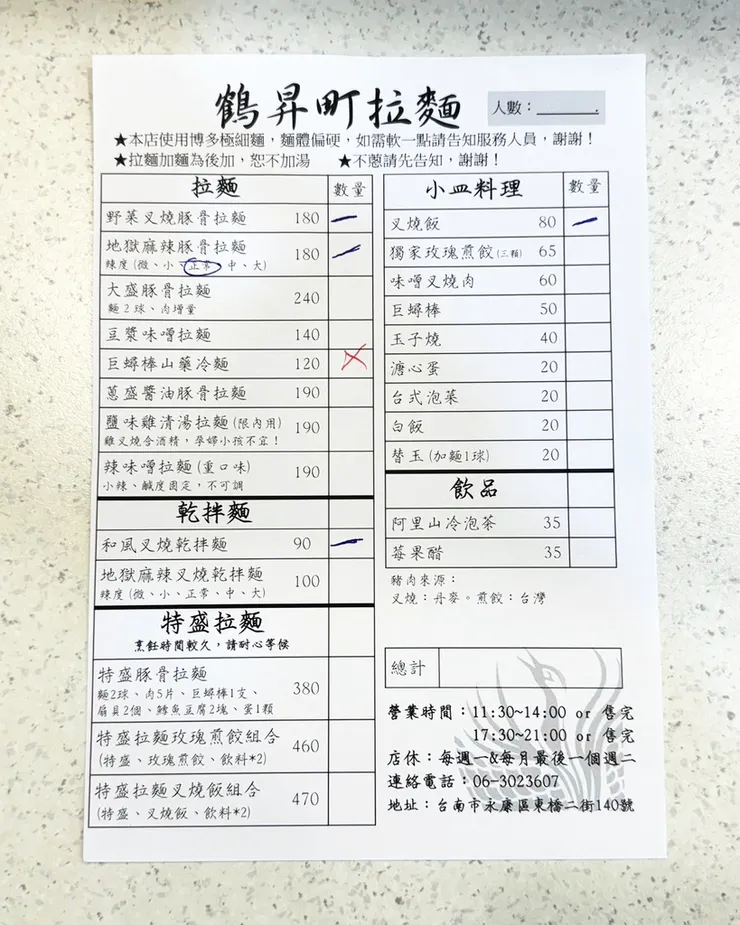 鶴昇町拉麵
人數：________.
★本店使用博多極細麵，麵體偏硬，如需軟一點請告知服務人員，謝謝！
★拉麵加麵為後加，恕不加湯 ★不蔥請先告知，謝謝！
拉麵 數量
野菜叉燒豚骨拉麵 180 一
地獄麻辣豚骨拉麵 180 一
辣度(微、小、正常、中、大)
大盛豚骨拉麵 240
麵2球、肉增量
豆漿味噌拉麵 140
巨蟳棒山藥冷麵 120 ✗
蔥盛醬油豚骨拉麵 190
鹽味雞清湯拉麵(限內用) 190
雞叉燒含酒精，孕婦小孩不宜！
辣味噌拉麵(重口味) 190
小辣、鹹度固定，不可調
乾拌麵
和風叉燒乾拌麵 90 一
地獄麻辣叉燒乾拌麵 100
辣度(微、小、正常、中、大)
特盛拉麵
烹飪時間較久，請耐心等候
特盛豚骨拉麵 380
麵2球、肉5片、巨蟳棒1支、
扇貝2個、鱈魚豆腐2塊、蛋1顆
特盛拉麵玫瑰煎餃組合 460
(特盛、玫瑰煎餃、飲料*2)
特盛拉麵叉燒飯組合 470
(特盛、叉燒飯、飲料*2)
小皿料理 數量
叉燒飯 80 一
獨家玫瑰煎餃(三顆) 65
味噌叉燒肉 60
巨蟳棒 50
玉子燒 40
溏心蛋 20
台式泡菜 20
白飯 20
替玉(加麵1球) 20
飲品
阿里山冷泡茶 35
莓果醋 35
豬肉來源：
叉燒：丹麥。煎餃：台灣
總計
營業時間：11:30~14:00 or 售完
17:30~21:00 or 售完
店休：每週一&每月最後一個週二
連絡電話：06-3023607
地址：台南市永康區東橋二街140號